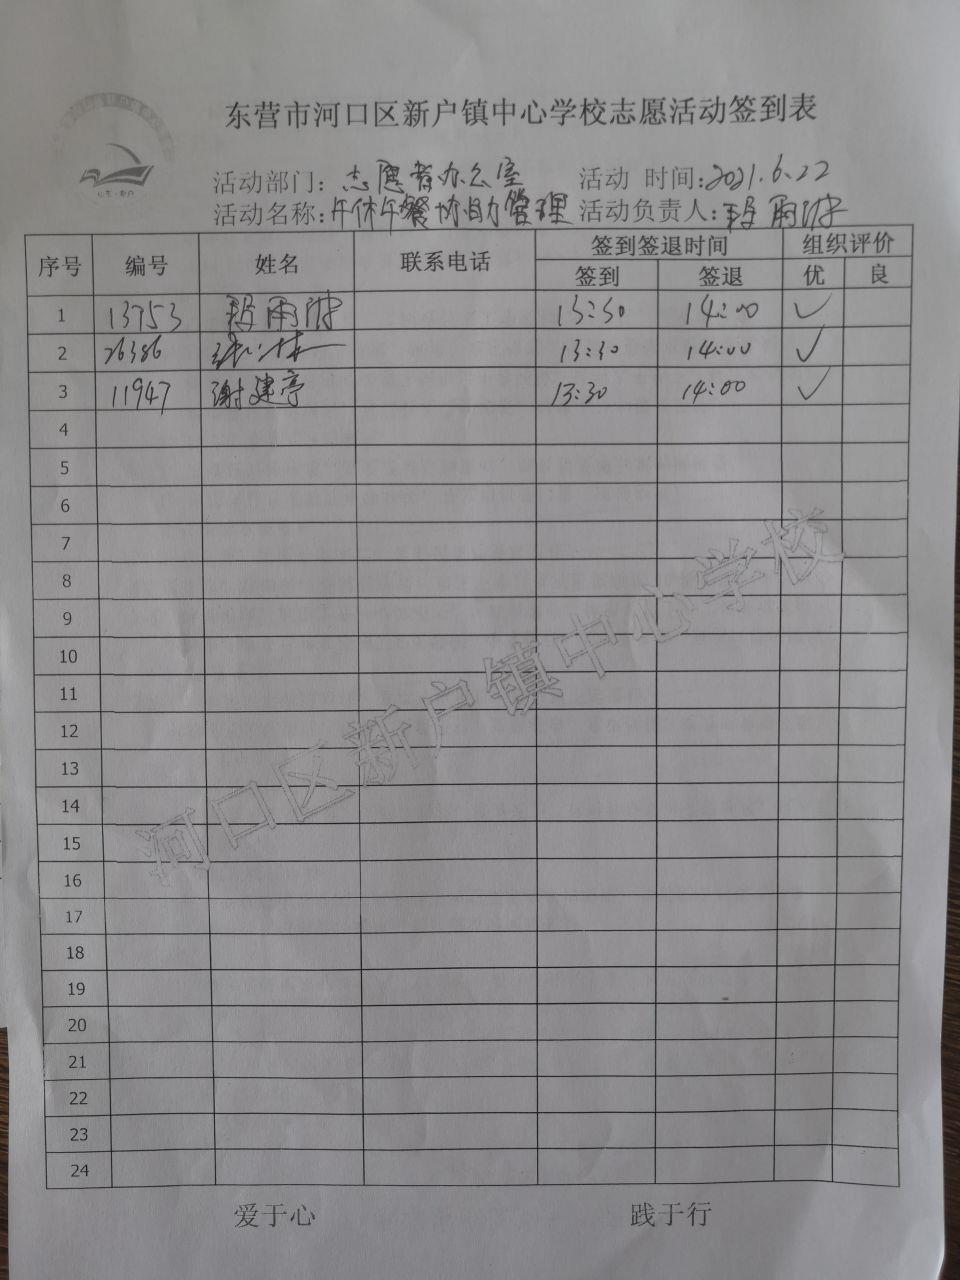 东营市河口区新户镇中心学校志愿活动签到表
山东·新户
活动部门: 志愿者办公室 活动 时间:2021.6.22
活动名称: 午休午餐协助管理 活动负责人: 段雨
序号 编号 姓名 联系电话 签到签退时间 组织评价
签到 签退 优 良
1 13753 段雨 13:30 14:00 ✓
2 26386 13:30 14:00 ✓
3 11947 谢建亭 13:30 14:00 ✓
4
5
6
7
8
9
10
11
12
13
14
15
16
17
18
19
20
21
22
23
24
河口区新户镇中心学校
爱于心 践于行